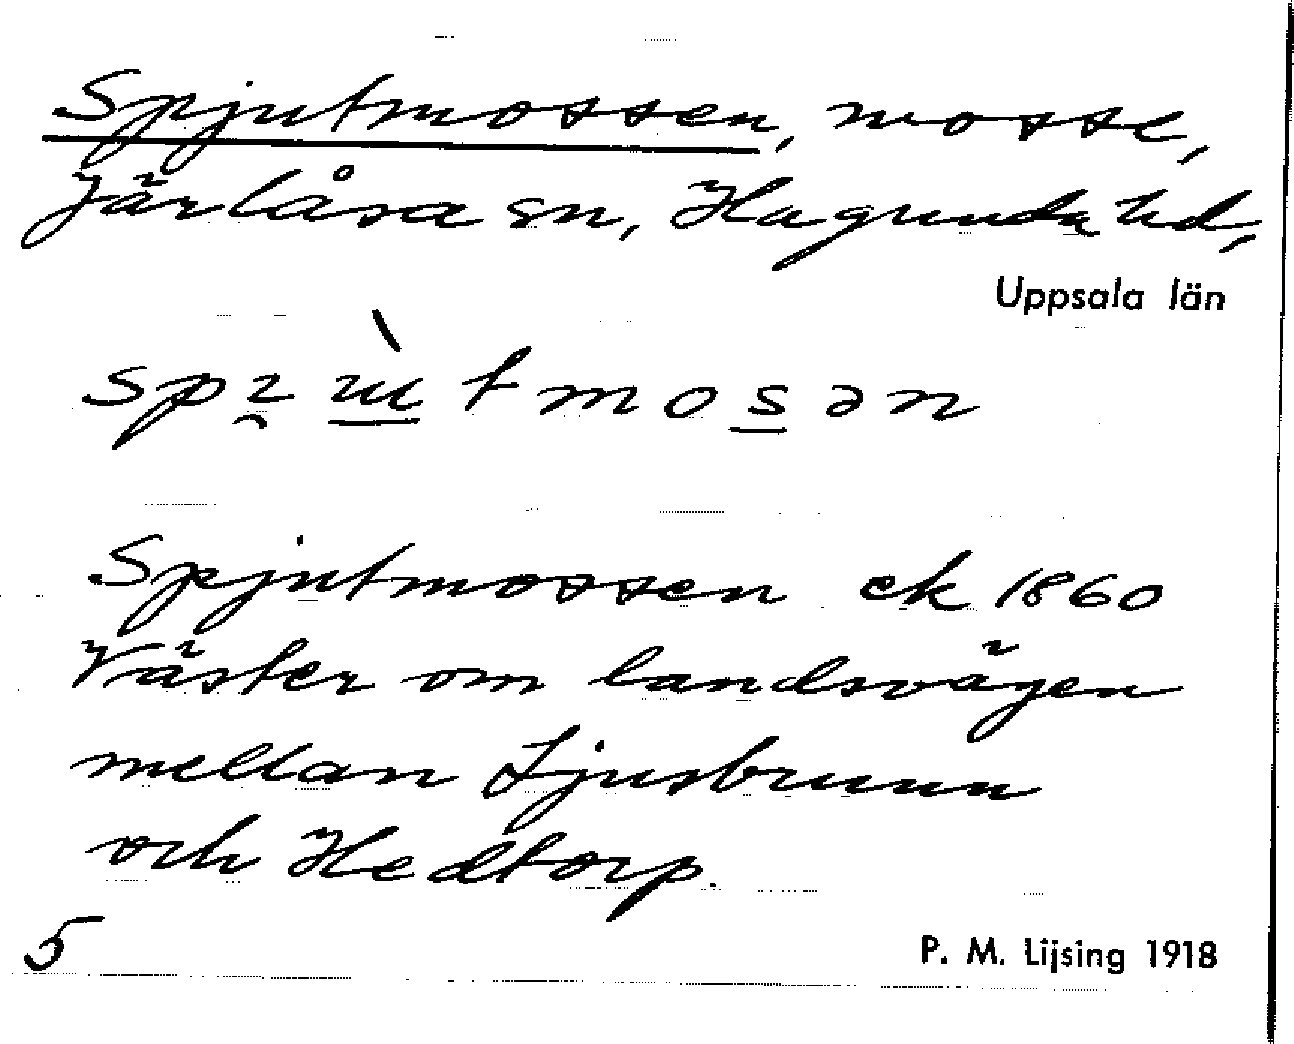 Spjutmossen, mosse,
Järlåsa sn, Hagunda hd,
Uppsala län
Spjutmossen ek 1860
Väster om landsvägen
mellan Ljusbrunn
och Hedtorp.
5
P. M. Lijsing 1918